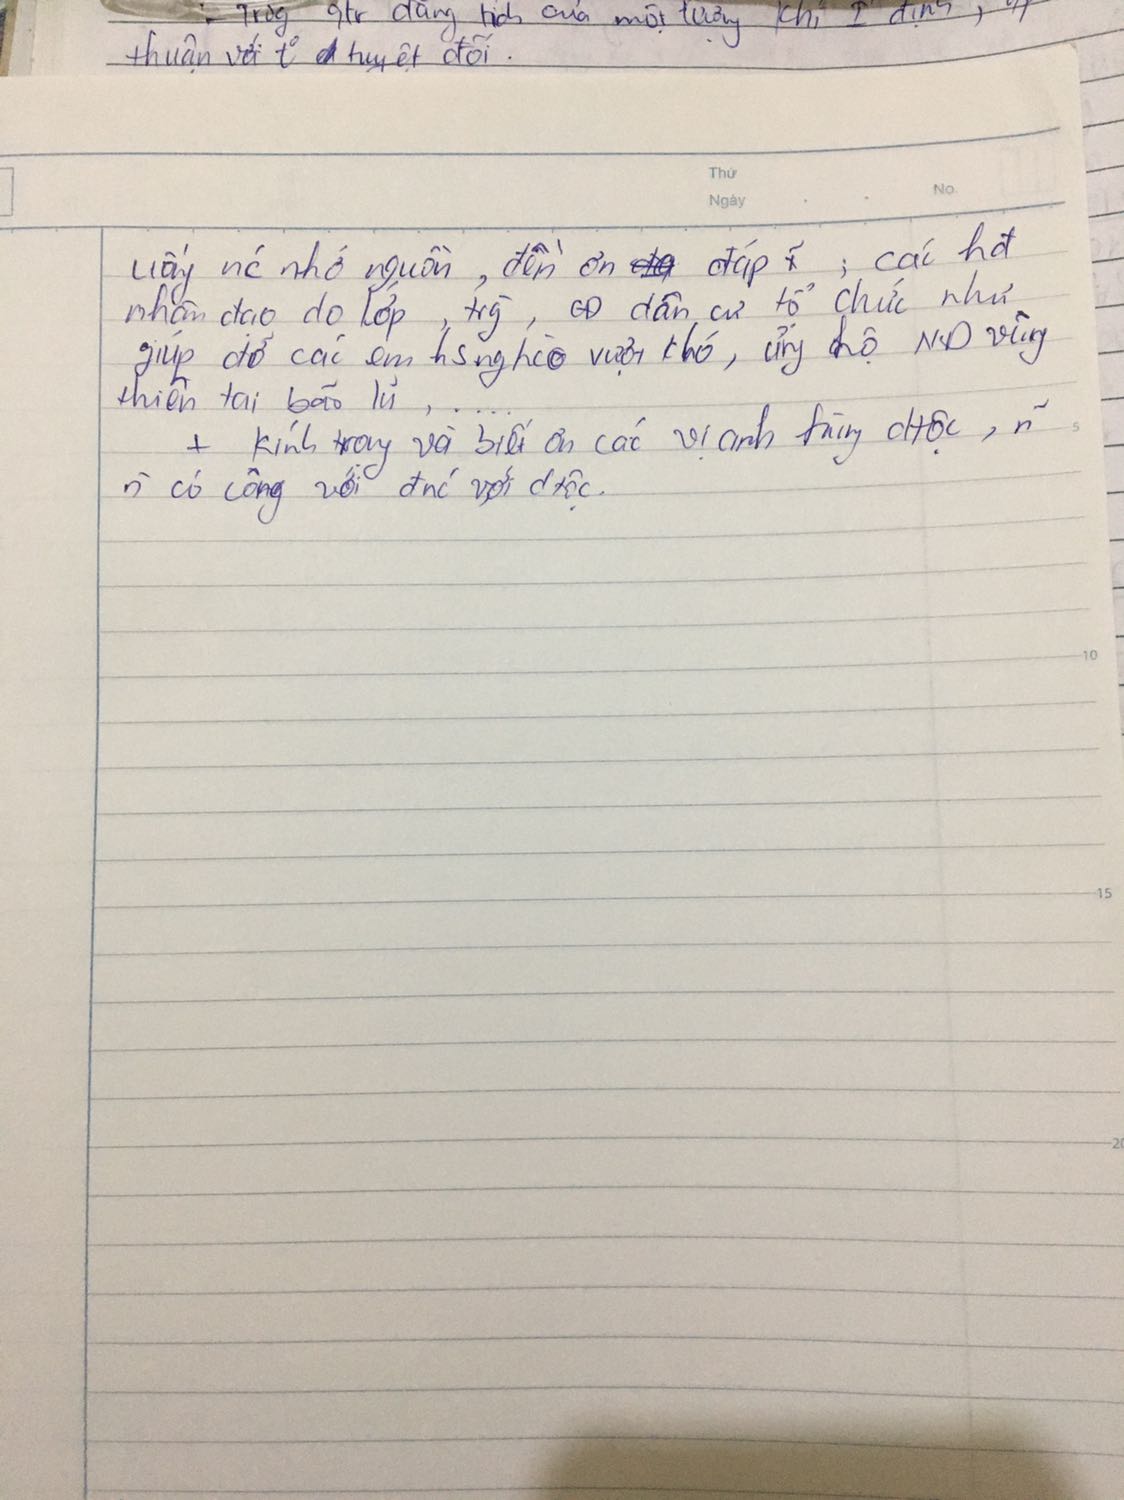 : Trog qtr đẳng tích của một lượng khí I định,
thuận với t° tuyệt đối.
Thứ
Ngày
No
uống nc nhớ nguồn, đền ơn đáp ; các hđ
nhân đạo do lớp, trg, dân cư tổ chức như
giúp đỡ các em hs nghèo vượt khó, ủng hộ ND vùng
thiên tai bão lũ, .....
+ Kính trọng và biết ơn các vị anh hùng dtộc, n~
n` có công với đnc với dtộc.
5
10
15
20